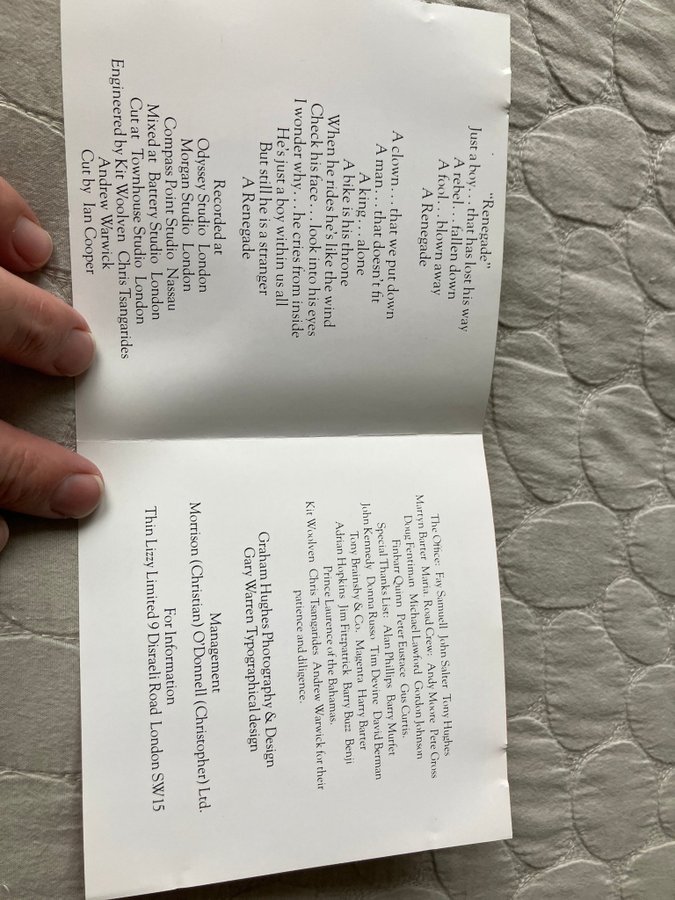 "Renegade"
Just a boy... that has lost his way
A rebel... fallen down
A fool... blown away
A Renegade
A clown... that we put down
A man... that doesn't fit
A king... alone
A bike is his throne
When he rides he's like the wind
Check his face... look into his eyes
I wonder why... he cries from inside
He's just a boy within us all
But still he is a stranger
A Renegade
Recorded at
Odyssey Studio London
Morgan Studio London
Compass Point Studio Nassau
Mixed at Battery Studio London
Cut at Townhouse Studio London
Engineered by Kit Woolven Chris Tsangarides
Andrew Warwick
Cut by Ian Cooper
The Office: Fay Samuell John Salter Tony Hughes
Martyn Barter Maria. Road Crew: Andy Moore Pete Gross
Doug Fentiman Michael Lawford Gordon Johnson
Finbarr Quinn Peter Eustace Gus Curtis.
Special Thanks List: Alan Phillips Barry Murfet
John Kennedy Donna Russo Tim Devine David Berman
Tony Brainsby & Co. Magenta Harry Barter
Adrian Hopkins Jim Fitzpatrick Barry Buzz Benji
Prince Laurence of the Bahamas.
Kit Woolven Chris Tsangarides Andrew Warwick for their
patience and diligence.
Graham Hughes Photography & Design
Gary Warren Typographical design
Management
Morrison (Christian) O'Donnell (Christopher) Ltd.
For Information
Thin Lizzy Limited 9 Disraeli Road London SW15